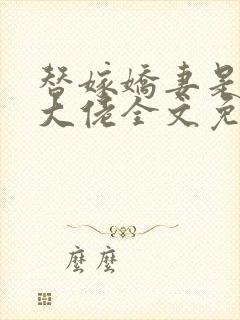 替嫁嬌妻是
大佬全文免
麼麼